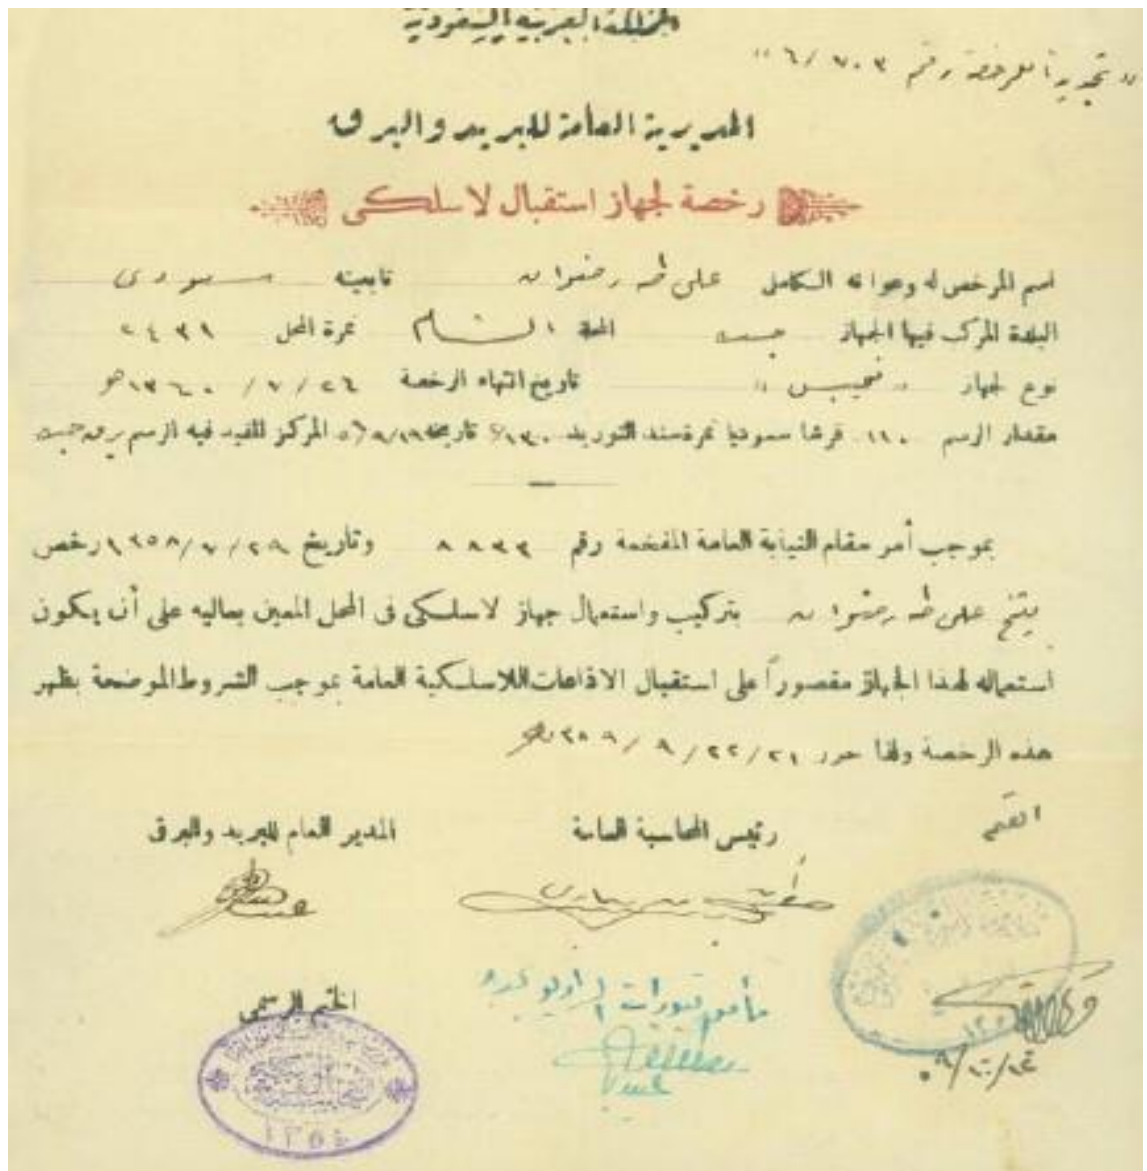 المملكة العربية السعودية
" تجديد الرخصة رقم ٦/٧٠٣ "
المديرية العامة للبريد والبرق
رخصة لجهاز استقبال لاسلكى
اسم المرخص له وعنوانه الكامل على طه رضوان تابعيته سعودى
البلدة المركب فيها الجهاز جده المحلة الشام نمرة المحل ٢٤٣٩
نوع لجهاز " فيليبس " تاريخ انتهاء الرخصة ٢٦ / ٧ / ١٣٦٠هـ
مقدار الرسم ١١٠ قرشا سعوديا نمرة سند التوريد تاريخه المركز المقيد فيه الرسم برق جده
بموجب أمر مقام النيابة العامة المفخمة رقم ٨٨٣٣ وتاريخ ٢٩ /٧/ ١٣٥٨ رخص
على طه رضوان بتركيب واستعمال جهاز لاسلكى فى المحل المعين بعاليه على أن يكون
استعماله لهذا الجهاز مقصوراً على استقبال الاذاعات اللاسلكية العامة بموجب الشروط الموضحة بظهر
هذه الرخصة ولذا حرر ٢٢/٢١ / ٩ / ١٣٥٩هـ
القلم
رئيس المحاسبة العامة
المدير العام للبريد والبرق
الختم الرسمى
١٣٥٤